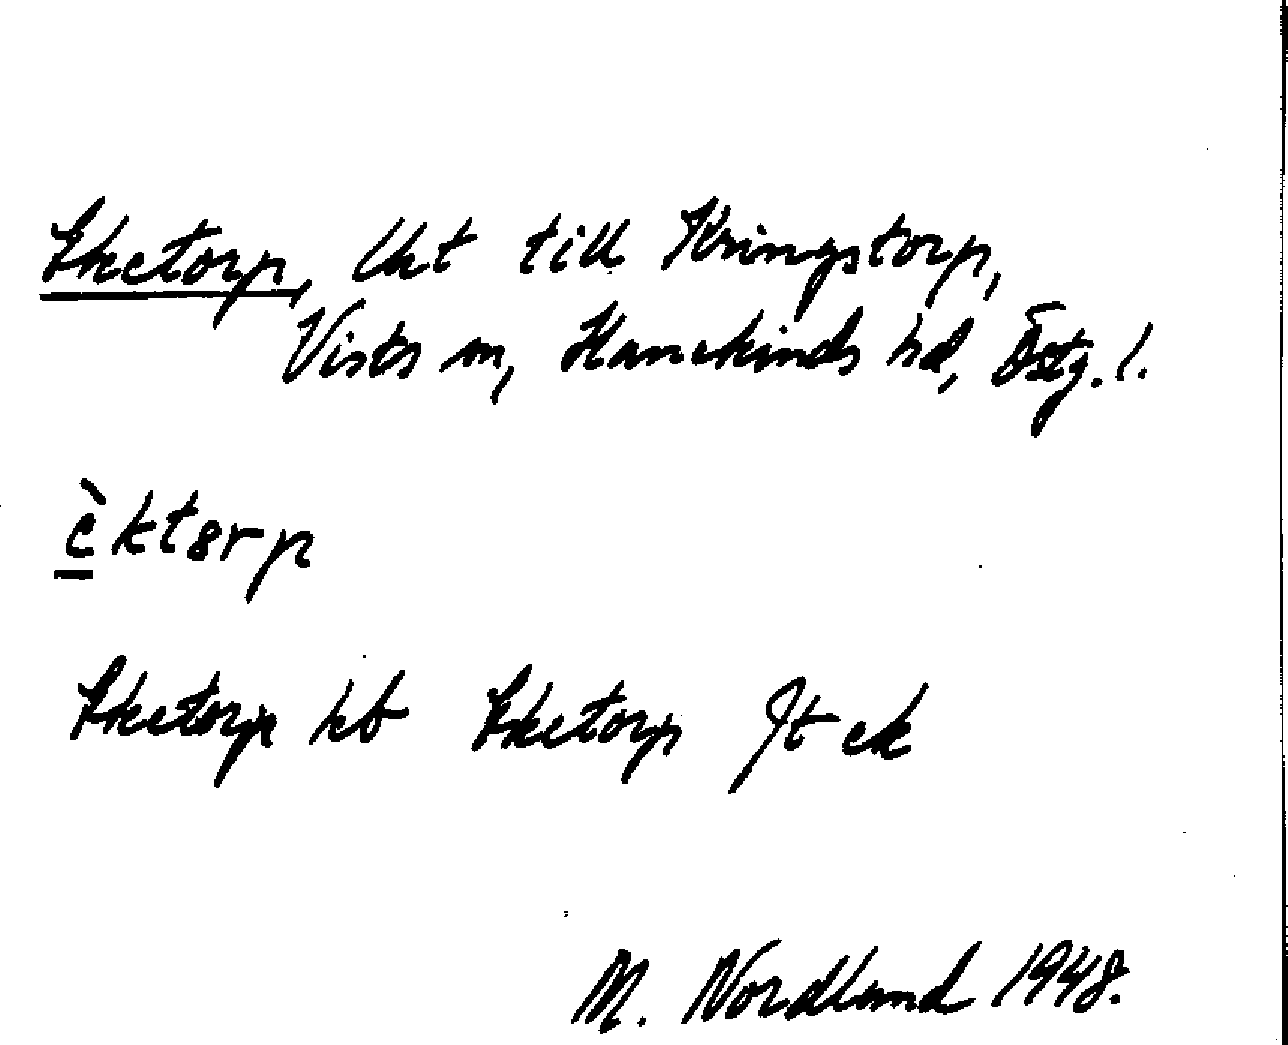 Eketorp, lht till Kringstorp,
Vists sn, Hanekinds hd, Östg. l.
è̱kt8rp
Eketorp kb Eketorp Jt ek
M. Nordlund 1948.